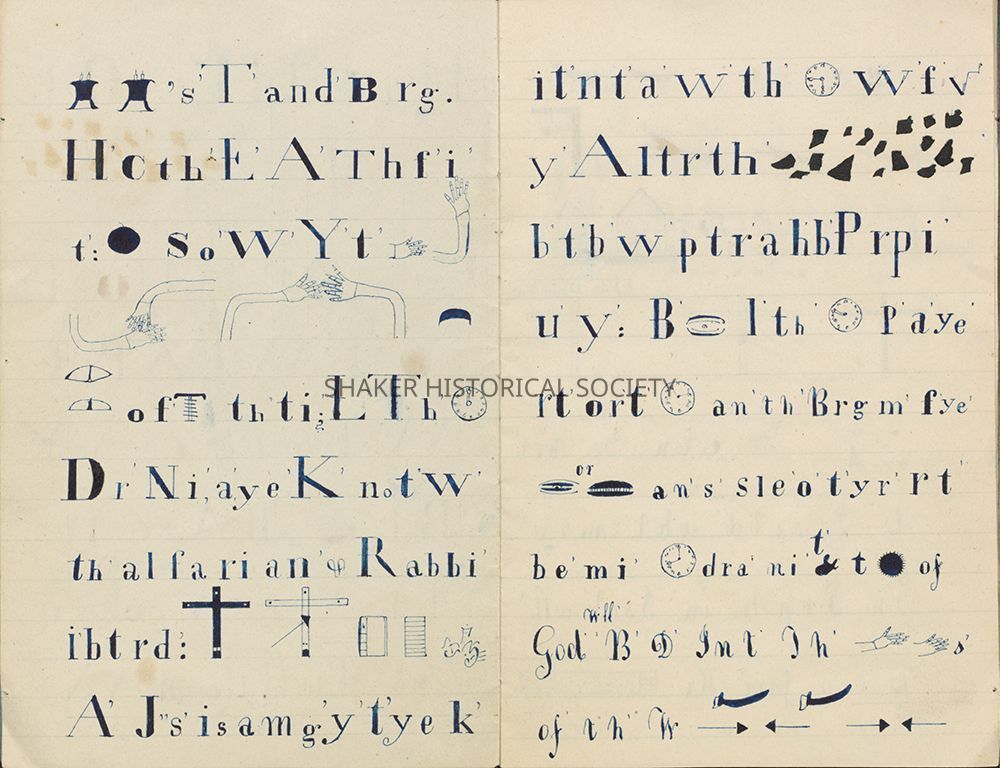 's T' and B rg.
H' c' th E' A' Th f' i'
t': S o' W' Y' t'
of T th' t i'; L' Th
D r' N i', a' y e' K' no t' w'
th' al f a' ri an' R abbi'
i b t r d':
A' J's' is a m g' y' t' y e k'
it' n t' a' w' th' W' f' y
y' A l t r th'
b' t b' w' p t r' a h b P r p i'
u' y': B' l' th' P' a' y e'
r t' or t an' th' B r g' m' f y e'
or
an' s' s l e' o' t' y' r' r t'
b e' m i' d r a' n i' t' t' of
will
God' B' D' In t' Th' s'
of th W'
SHAKER HISTORICAL SOCIETY